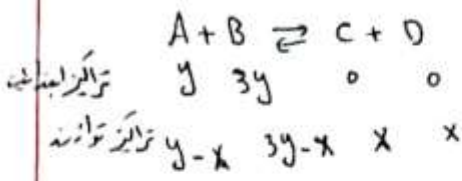 A + B ⇌ C + D
تراكيز ابتدائية y 3y 0 0
تراكيز توازن y-x 3y-x x x